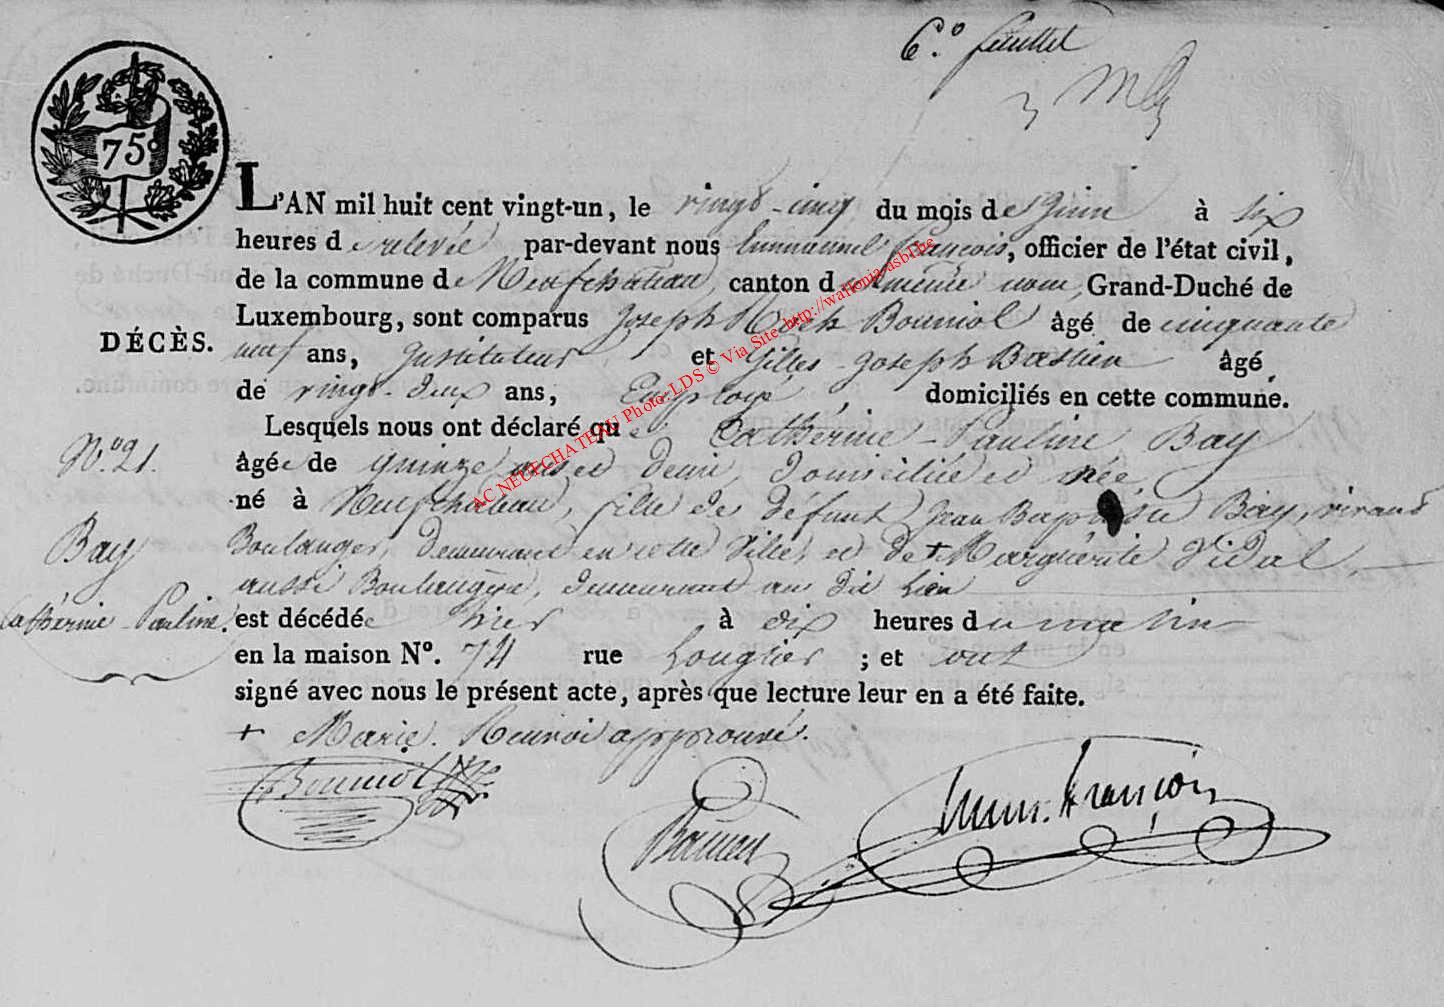 6.º feuillet
75º
L'AN mil huit cent vingt-un, le vingt-cinq du mois de Juin à six
heures de relevée par-devant nous Emmanuel François, officier de l'état civil,
de la commune de Neufchateau, canton du même nom, Grand-Duché de
Luxembourg, sont comparus Joseph Roch Bouniol âgé de cinquante
DÉCÈS.
neuf ans, Instituteur et Gilles-Joseph Bastien âgé
de vingt-deux ans, Employé, domiciliés en cette commune.
Lesquels nous ont déclaré que Catherine-Pauline Bay
N.º 21.
âgée de quinze ans et demi, domiciliée et née
né à Neufchateau, fille de défunt Jean Baptiste Bay, vivant
Bay
Boulanger, demeurant en cette Ville, et de + Marguérite Vidal,
aussi Boulangère, demeurant au dit Lieu
Catherine-Pauline.
est décédée hier à dix heures du matin
en la maison Nº. 74 rue Longlier ; et ont
signé avec nous le présent acte, après que lecture leur en a été faite.
+ Marie. Renvoi approuvé.
Bouniol
Emm. François
AC NEUFCHATEAU Photo LDS © Via Site http://wallonia-asbl.be